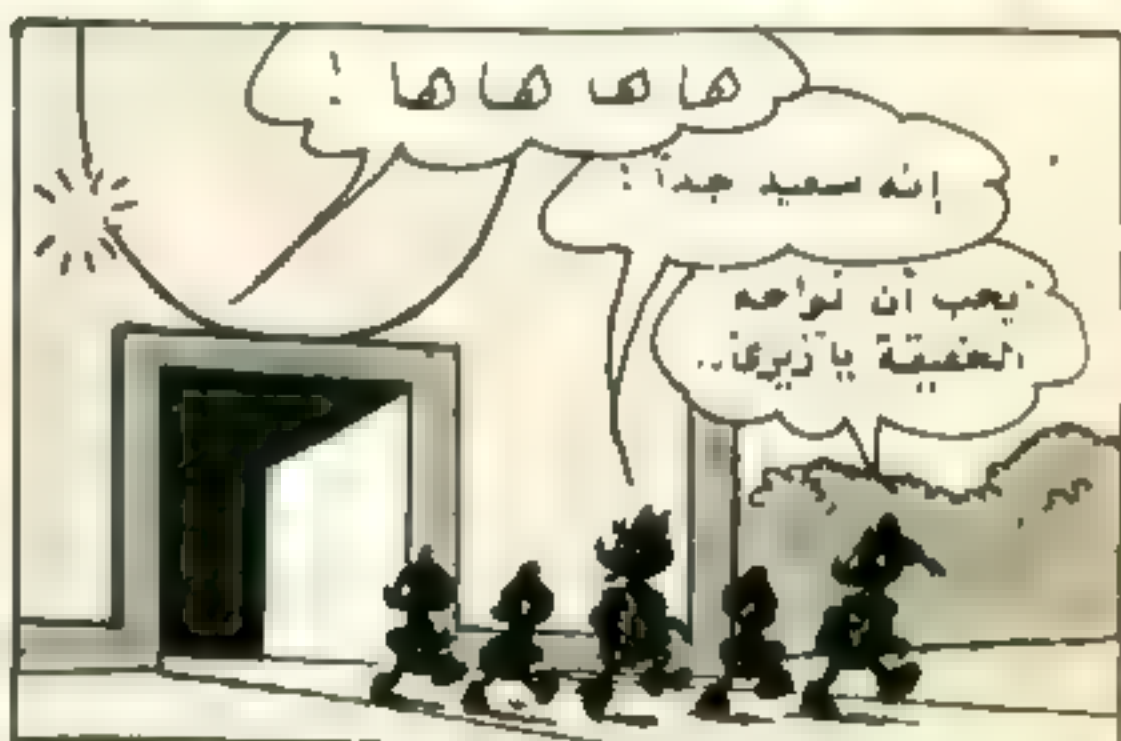 ها ها ها ها !
إنه سعيد جداً !
يجب أن نواجه
الحقيقة يا زيزي..